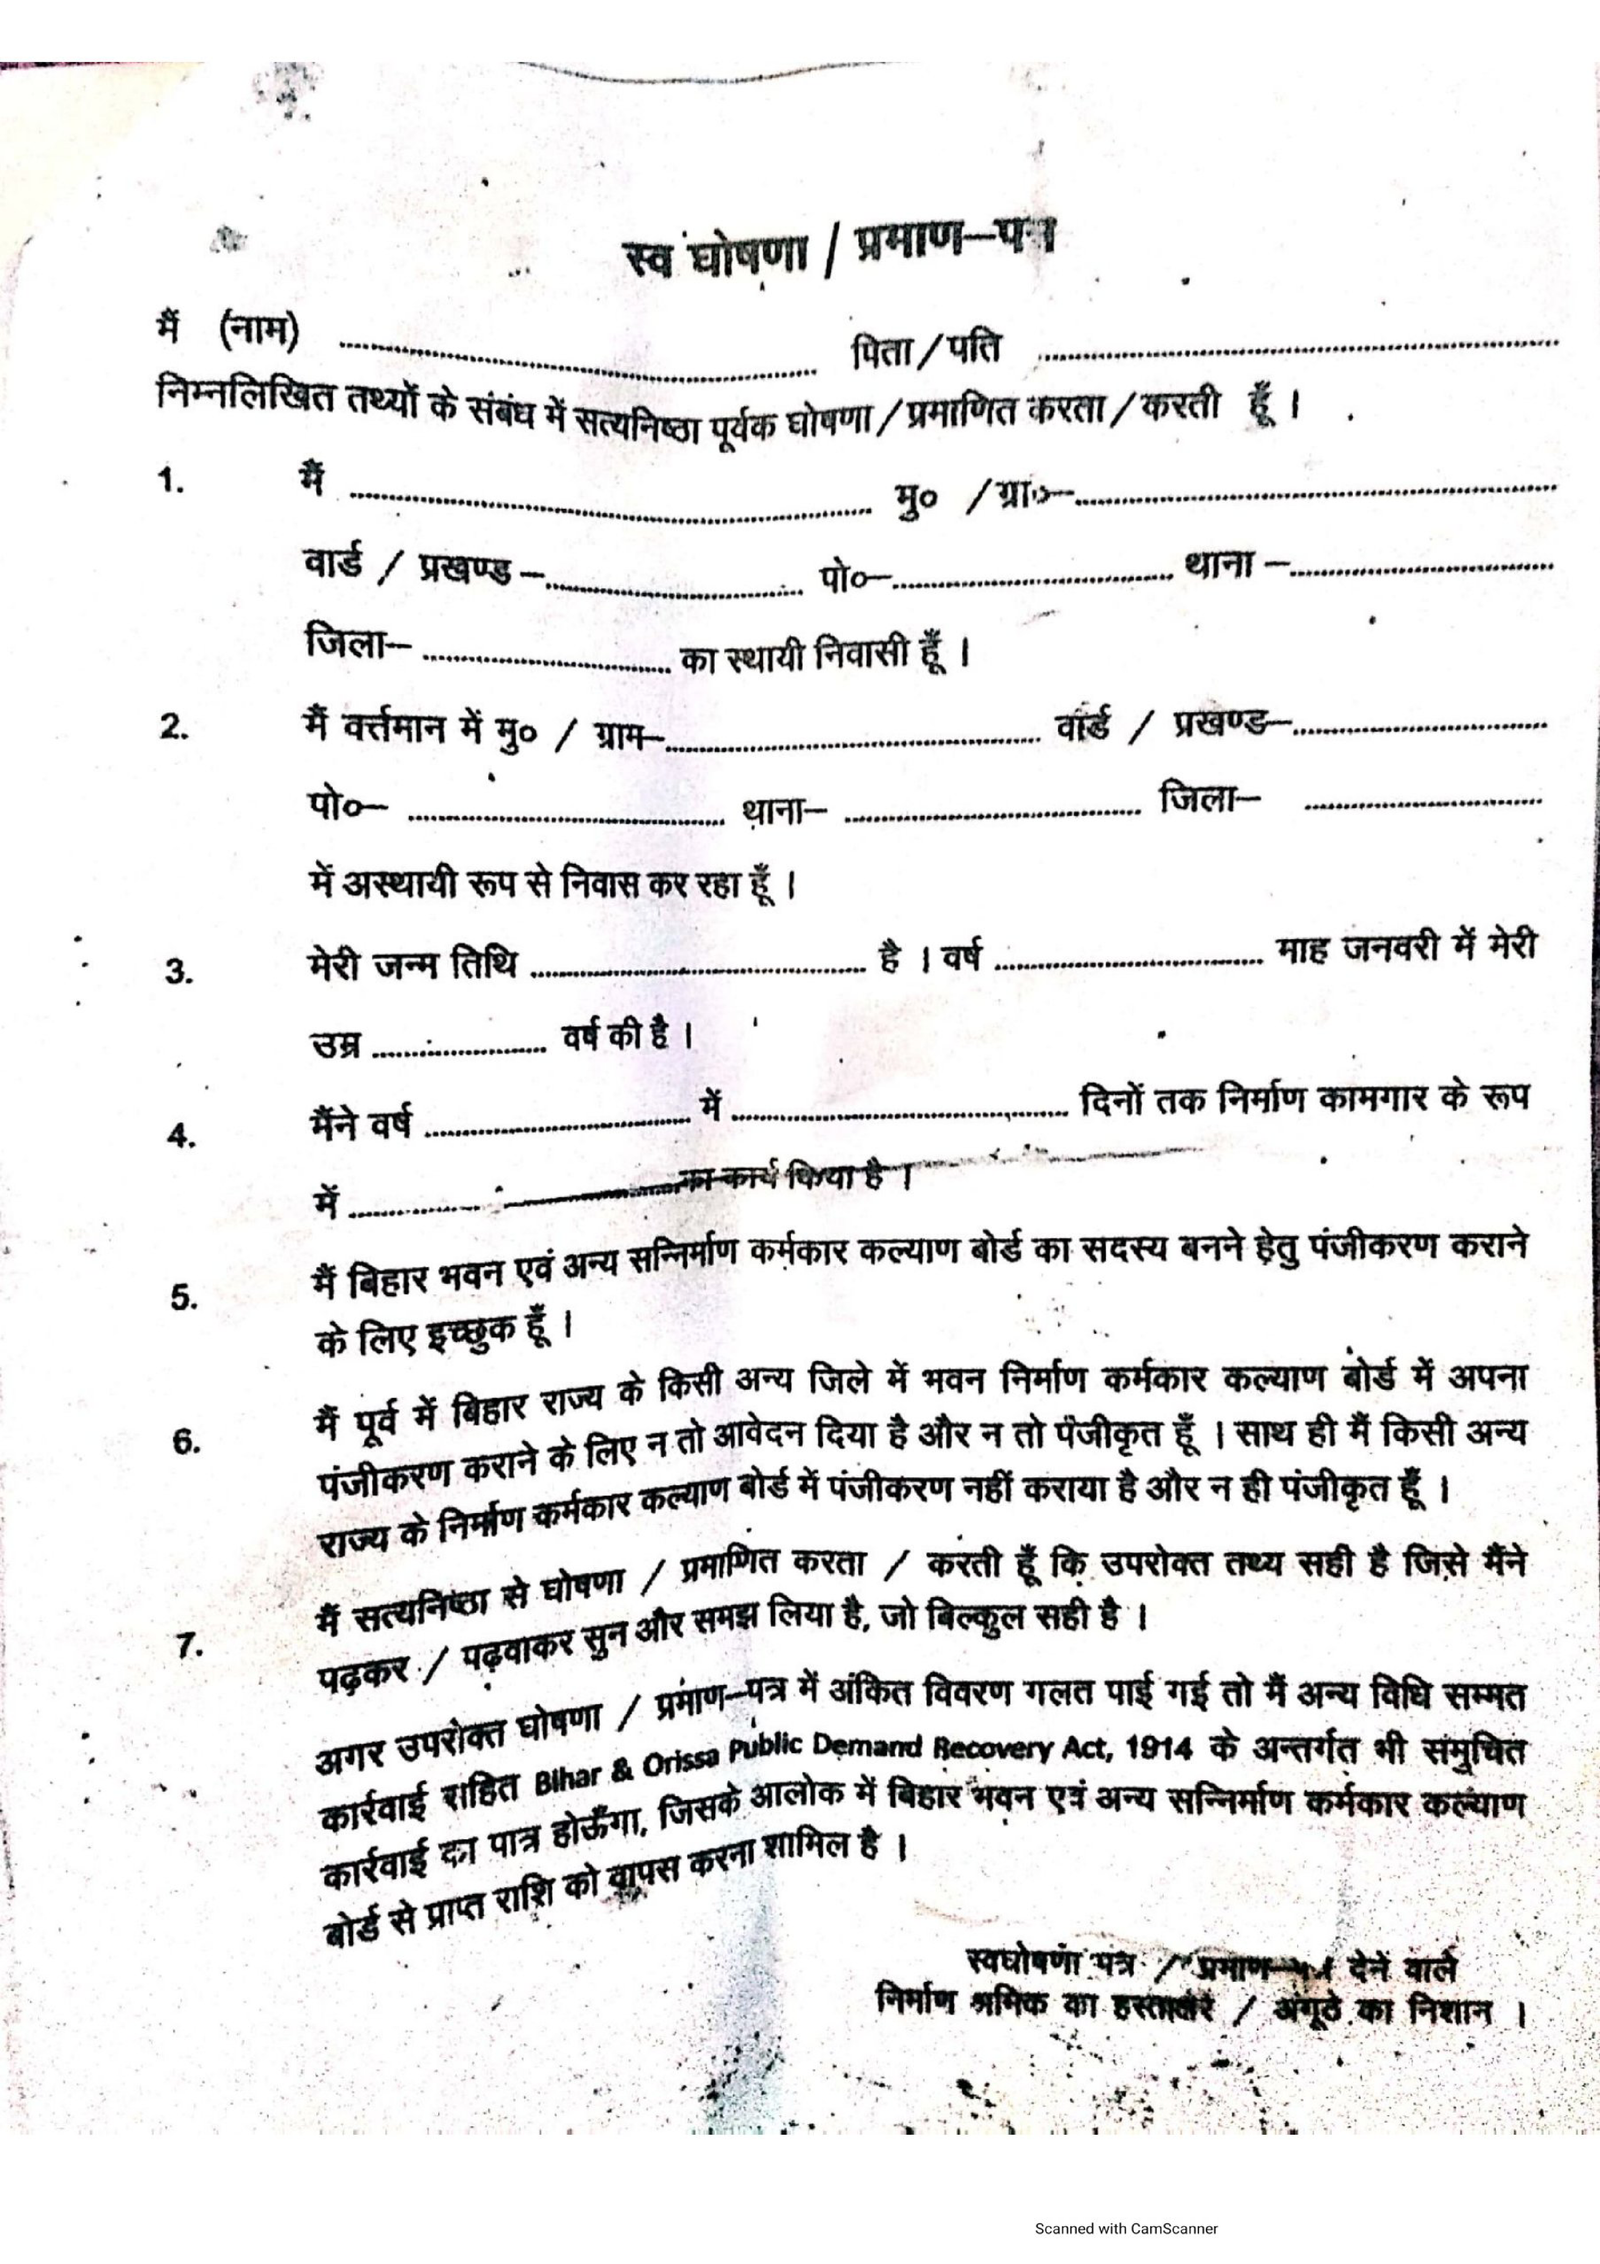 स्व घोषणा / प्रमाण–पत्र
मैं (नाम) ........................ पिता/पति ........................
निम्नलिखित तथ्यों के संबंध में सत्यनिष्ठा पूर्वक घोषणा/प्रमाणित करता/करती हूँ ।
1. मैं ........................ मु० /ग्रा०–........................
वार्ड / प्रखण्ड –........................ पो०–........................ थाना –........................
जिला– ........................ का स्थायी निवासी हूँ ।
2. मैं वर्त्तमान में मु० / ग्राम–........................ वार्ड / प्रखण्ड–........................
पो०– ........................ थाना– ........................ जिला– ........................
में अस्थायी रूप से निवास कर रहा हूँ ।
3. मेरी जन्म तिथि ........................ है । वर्ष ........................ माह जनवरी में मेरी
उम्र ........................ वर्ष की है ।
4. मैंने वर्ष ........................ में ........................ दिनों तक निर्माण कामगार के रूप
में ........................ का कार्य किया है ।
5. मैं बिहार भवन एवं अन्य सन्निर्माण कर्मकार कल्याण बोर्ड का सदस्य बनने हेतु पंजीकरण कराने
के लिए इच्छुक हूँ ।
6. मैं पूर्व में बिहार राज्य के किसी अन्य जिले में भवन निर्माण कर्मकार कल्याण बोर्ड में अपना
पंजीकरण कराने के लिए न तो आवेदन दिया है और न तो पंजीकृत हूँ । साथ ही मैं किसी अन्य
राज्य के निर्माण कर्मकार कल्याण बोर्ड में पंजीकरण नहीं कराया है और न ही पंजीकृत हूँ ।
7. मैं सत्यनिष्ठा से घोषणा / प्रमाणित करता / करती हूँ कि उपरोक्त तथ्य सही है जिसे मैंने
पढ़कर / पढ़वाकर सुन और समझ लिया है, जो बिल्कुल सही है ।
अगर उपरोक्त घोषणा / प्रमाण–पत्र में अंकित विवरण गलत पाई गई तो मैं अन्य विधि सम्मत
कार्रवाई सहित Bihar & Orissa Public Demand Recovery Act, 1914 के अन्तर्गत भी समुचित
कार्रवाई का पात्र होऊँगा, जिसके आलोक में बिहार भवन एवं अन्य सन्निर्माण कर्मकार कल्याण
बोर्ड से प्राप्त राशि को वापस करना शामिल है ।
स्वघोषणा पत्र / प्रमाण–पत्र देने वाले
निर्माण श्रमिक का हस्ताक्षर / अंगूठे का निशान ।
Scanned with CamScanner